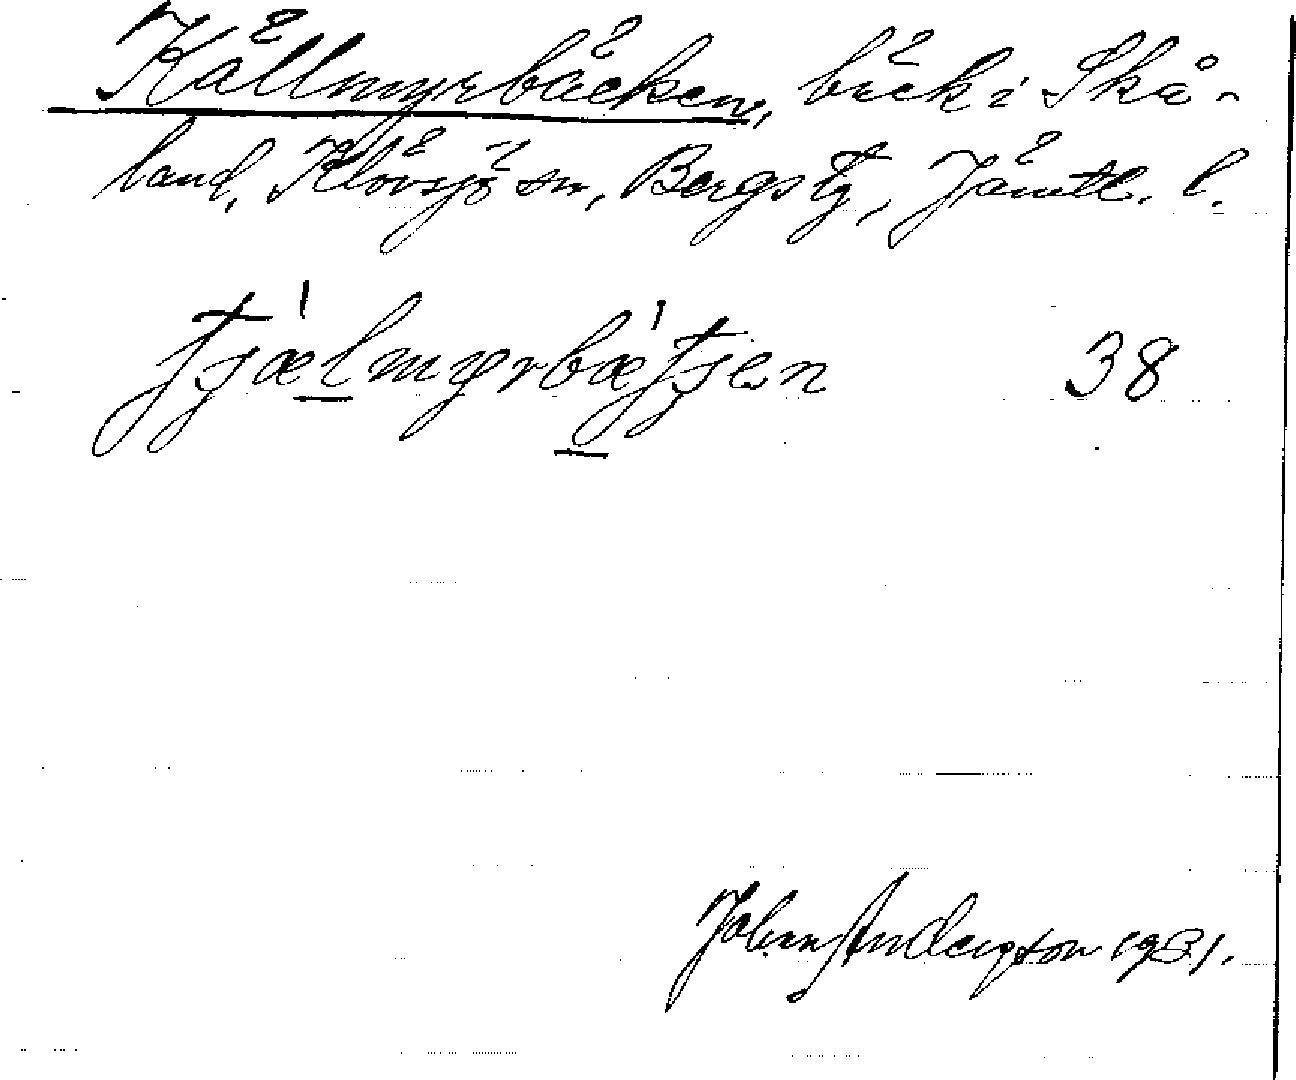 Källmyrbäcken, bäck i Skå-
land, Klövsjö sn, Bergs tg, Jämtl. l.
tjæ̀lmyrbæ̀tjen 38
Johan Anderson 1931.